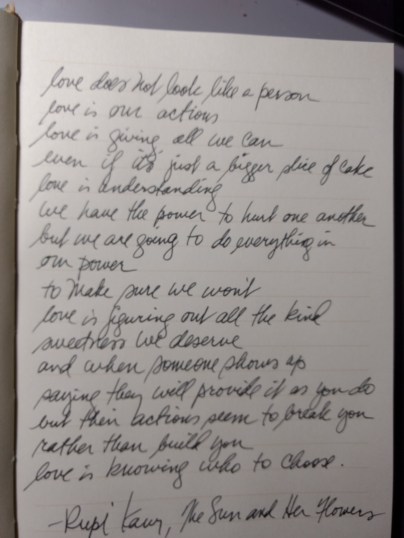 love does not look like a person
love is our actions
love is giving all we can
even if it's just a bigger slice of cake
love is understanding
we have the power to hurt one another
but we are going to do everything in
our power
to make sure we won't
love is figuring out all the kind
sweetness we deserve
and when someone shows up
saying they will provide it as you do
but their actions seem to break you
rather than build you
love is knowing who to choose.
-Rupi Kaur, The Sun and Her Flowers